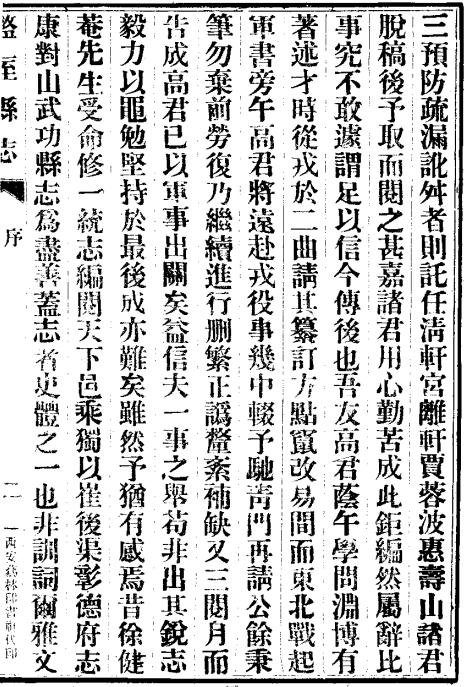 三預防疏漏訛舛者則託任淸軒宮離軒賈蓉波惠壽山諸君
脫稿後予取而閱之甚嘉諸君用心勤苦成此鉅編然屬辭比
事究不敢遽謂足以信今傳後也吾友高君蔭午學問淵博有
著述才時從戎於二曲請其纂訂方點竄改易間而東北戰起
軍書旁午高君將遠赴戎役事幾中輟予馳靑門再請公餘秉
筆勿棄前勞復乃繼續進行刪繁正譌釐紊補缺又三閱月而
告成高君已以軍事出關矣益信夫一事之舉苟非出其銳志
毅力以黽勉堅持於最後成亦難矣雖然予猶有感焉昔徐健
菴先生受命修一統志編閱天下邑乘獨以崔後渠彰德府志
康對山武功縣志爲盡善蓋志者史體之一也非訓詞爾雅文
盩厔縣志
序
二
西安藝林印書社代印